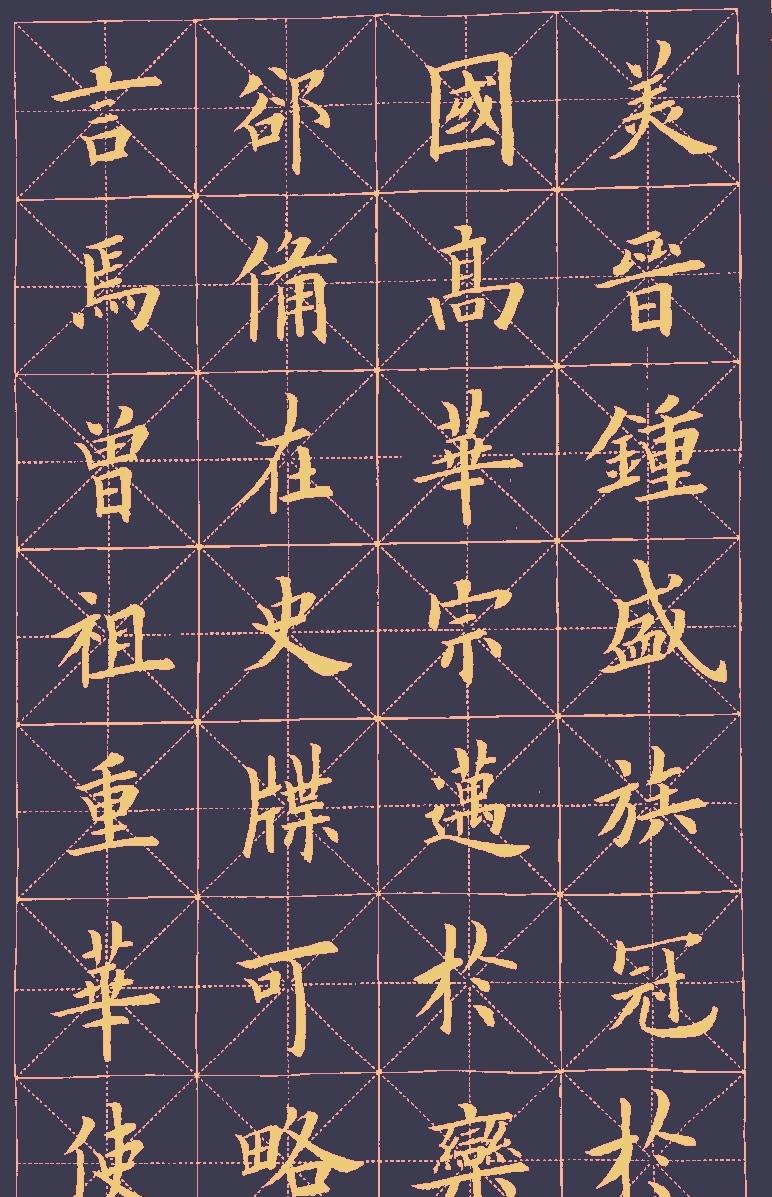 美晉鍾盛族冠於
國高華宗邁於欒
郤備在史牒可略
言焉曾祖重華使